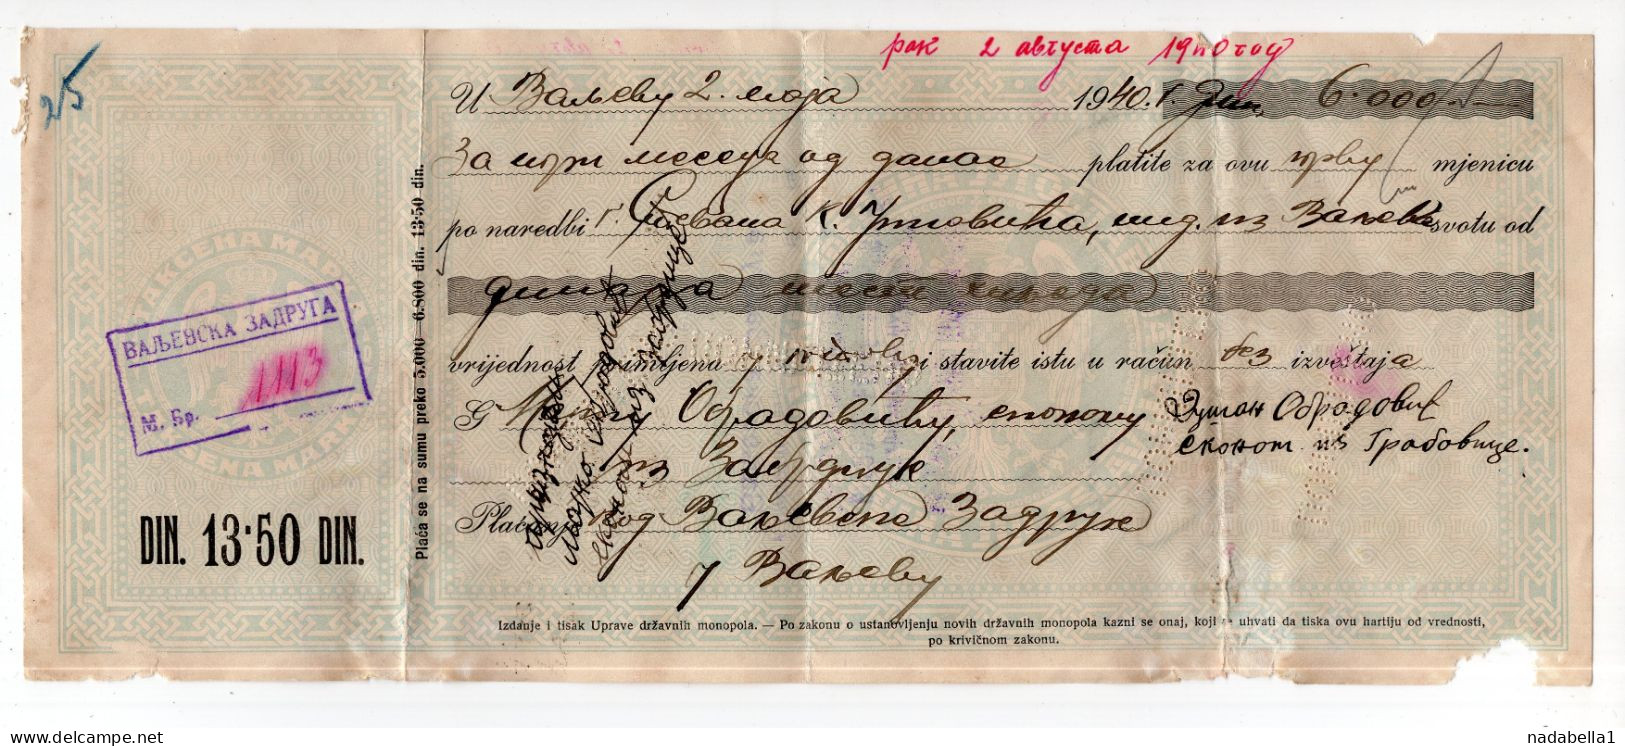 рок 2 августа 1940 год
25
У Ваљеву 2. маја 1940. г. Дин. 6.000.-
За три месеца од данас platite za ovu прву mjenicu
po naredbi г. Стевана К. инд. из Ваљева svotu od
динара шест хиљада
vrijednost primljena у готову i stavite istu u račun без izveštaja
G Обрадовићу, економу
из
Plaćanje код Ваљевске Задруге
у Ваљеву
Душан Обрадовић
економ из Грабовице.
економ из
ТАКСЕНА МАРКА
ВАЉЕВСКА ЗАДРУГА
1113
М. Бр.
DIN. 13·50 DIN.
Plaća se na sumu preko 5.000 — 6.800 din. 13·50 din.
Izdanje i tisak Uprave državnih monopola. — Po zakonu o ustanovljenju novih državnih monopola kazni se onaj, koji se uhvati da tiska ovu hartiju od vrednosti,
po krivičnom zakonu.
delcampe.net
nadabella1